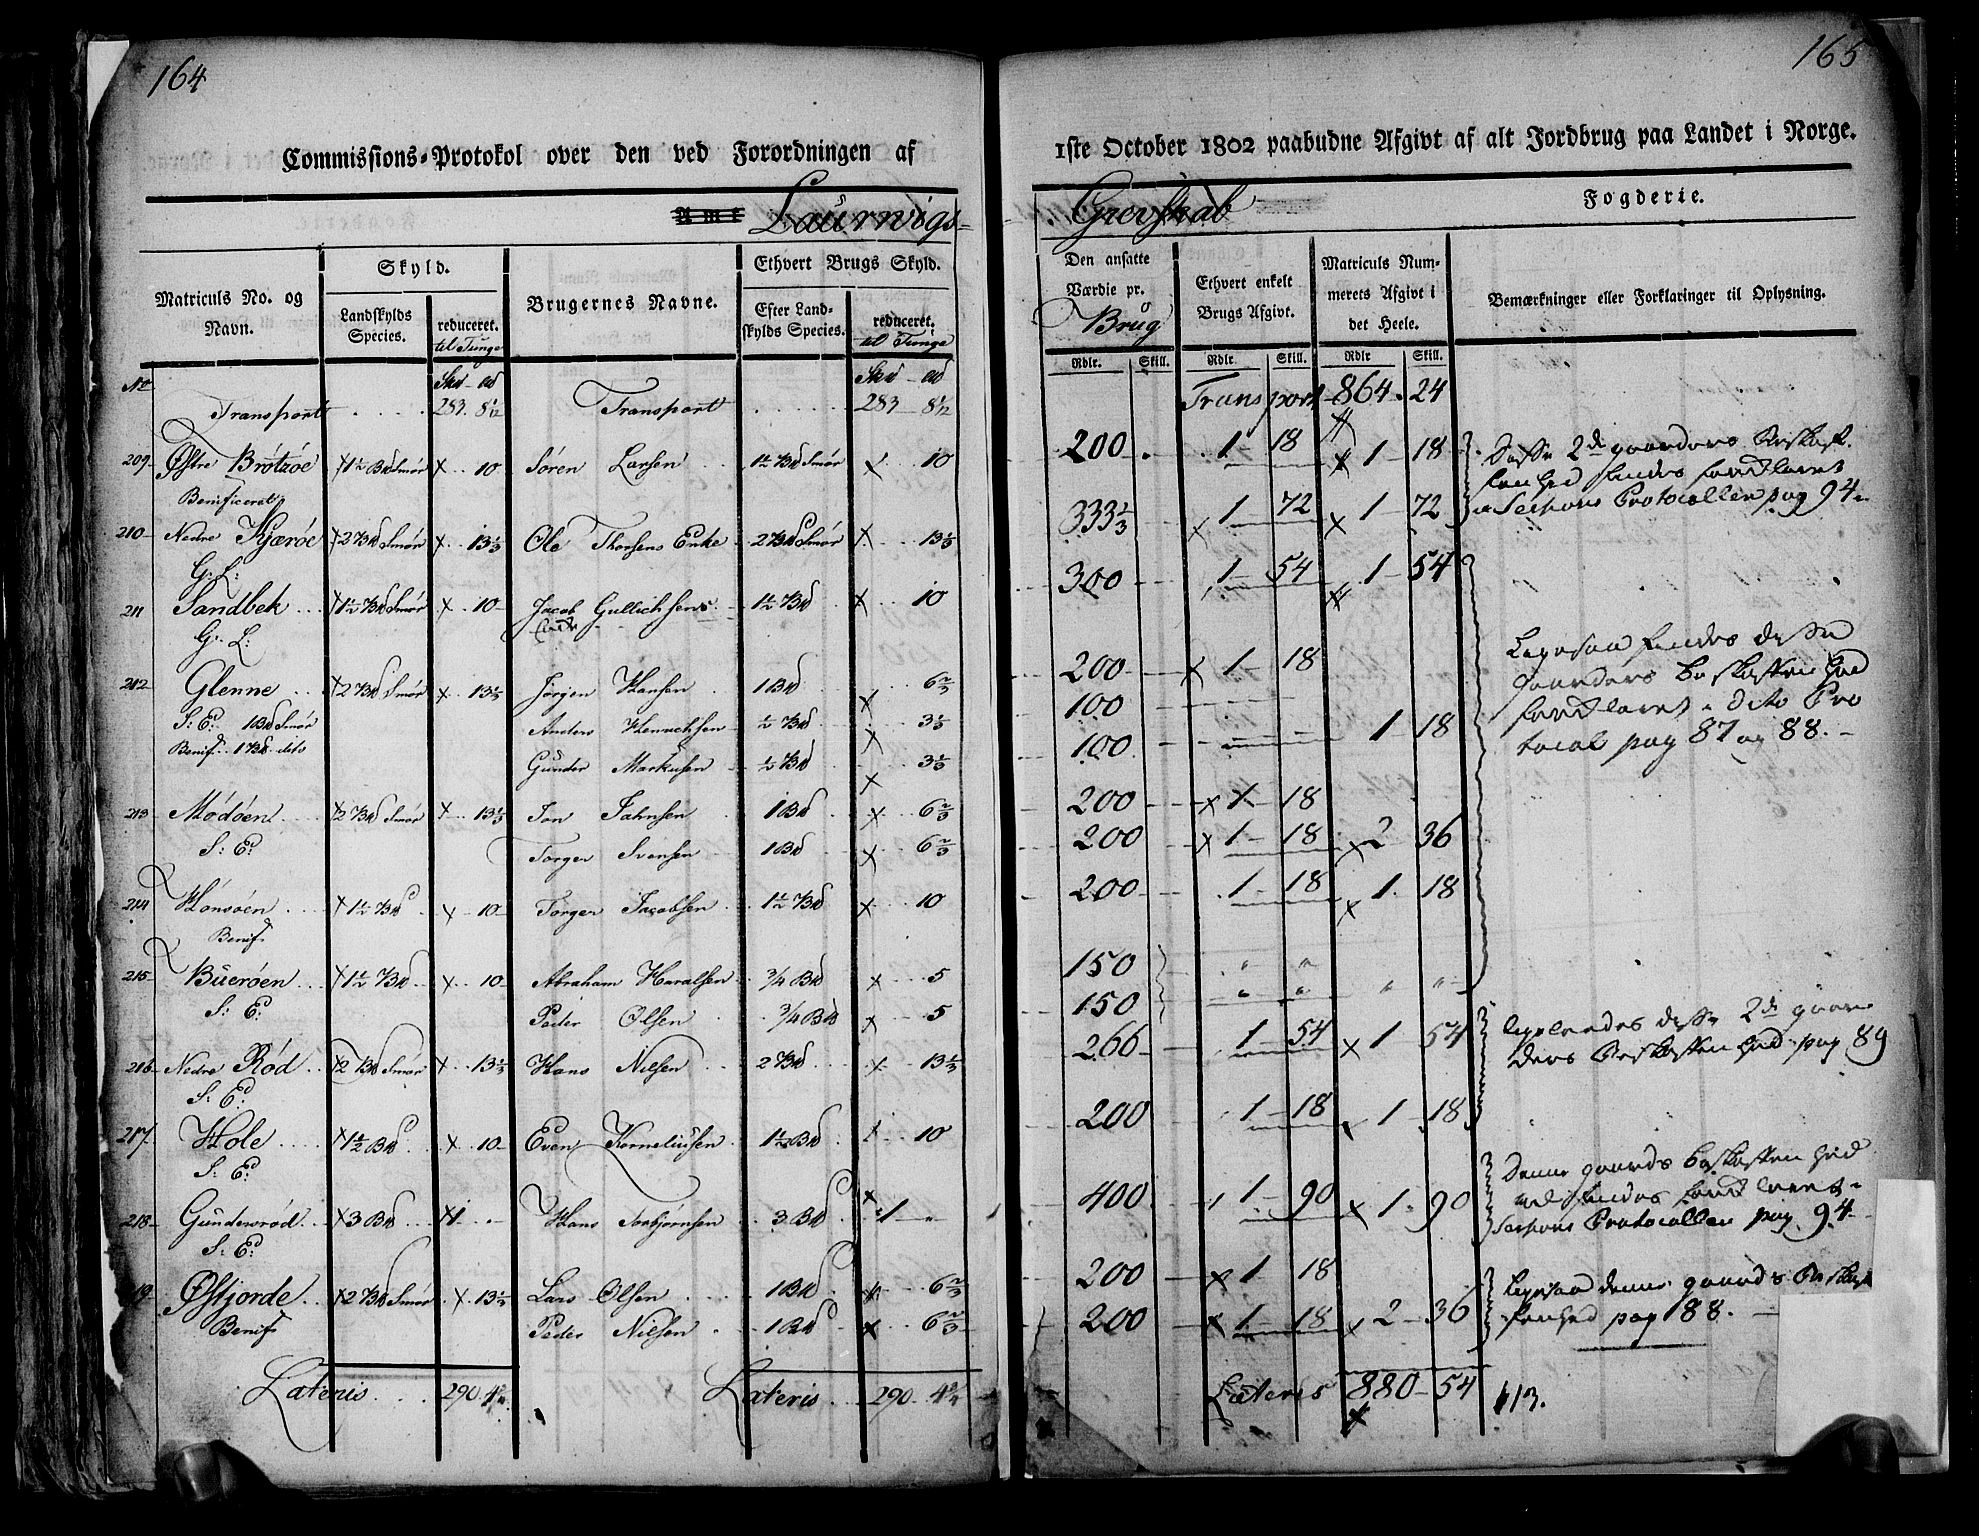 164
Commissions-Protokol over den ved Forordningen af
Amt Laurwigs-
Matriculs No. og Navn.
Skyld.
Landskylds Species.
reduceret. til Tunge
Brugernes Navne.
Ethvert Brugs Skyld.
Efter Landskylds Species.
reduceret. til Tunge
No
Transport 283 8 1/12 Transport 283 8 1/12
209 Østre Brötzöe 1½ Bd Smör 10 Sören Larsen 1½ Bd Smör 10
Benificeret
210 Nedre Kjæröe 2 Bd Smör 13⅓ Ole Thorsens Enke 2 Bd Smör 13⅓
G: L:
211 Sandbek 1½ Bd Smör 10 Jacob Gullichsens 1½ Bd 10
G. L:
212 Glenne 2 Bd Smör 13⅓ Jörgen Hansen 1 Bd 6⅔
S: E: 1 Bd Smör Anders Henrichsen ½ Bd 3⅓
Benif. 1 Bd dito Gunder Markusen ½ Bd 3⅓
213 Mödöen 2 Bd Smör 13⅓ Jon Jahnsen 1 Bd 6⅔
S: E: Torger Svensen 1 Bd 6⅔
214 Hönsöen 1½ Bd 10 Torger Jacobsen 1½ Bd 10
Benif.
215 Büeröen 1½ Bd 10 Abraham Haralsen ¾ Bd 5
S: E: Peder Olsen ¾ Bd 5
216 Nedre Röd 2 Bd Smör 13⅓ Hans Nilsen 2 Bd 13⅓
S: E:
217 Hole 1½ Bd 10 Even Korneliusen 1½ Bd 10
S: E:
218 Gundersröd 3 Bd 1 Hans Torbjörnsen 3 Bd 1
S: E:
19 Østjorde 2 Bd Smör 13⅓ Lars Olsen 1 Bd 6⅔
Benif. Peder Nilsen 1 Bd 6⅔
Lateris 290 Lateris 290
165
1ste October 1802 paabudne Afgivt af alt Jordbrug paa Landet i Norge.
Grevskab Fogderie.
Den ansatte Værdie pr. Brug
Ethvert enkelt Brugs Afgivt.
Matriculs Nummerets Afgivt i det Heele.
Bemærkninger eller Forklaringer til Oplysning.
Rdlr. Skill. Rdlr. Skill. Rdlr Skill.
Transport 864 24
200 1 18 1 18 Disse 2de gaarders Beskaf-
fenhed findes forklaret
333⅓ 1 72 1 72 i Sessions Protocollen pag 94
300 1 54 1 54
200 1 18 Ligesaa findes disse
100 gaarders Beskaffenhed
100 1 18 forklaret i dito Pro
tocol pag 87 og 88.
200 1 18
200 1 18 2 36
200 1 18 1 18
150 " " " "
150 " "
266 1 54 1 54 ligeledes disse 2de gaar
ders Beskaffenhed pag 89
200 1 18 1 18
Denne gaards Beskaffenhed
400 1 90 1 90 findes forklaret i
Sessions Protocollen pag. 94
200 1 18 Ligesaa denne gaards Beskaf
200 1 18 2 36 fenhed pag 188.
Lateris 880 54 113.